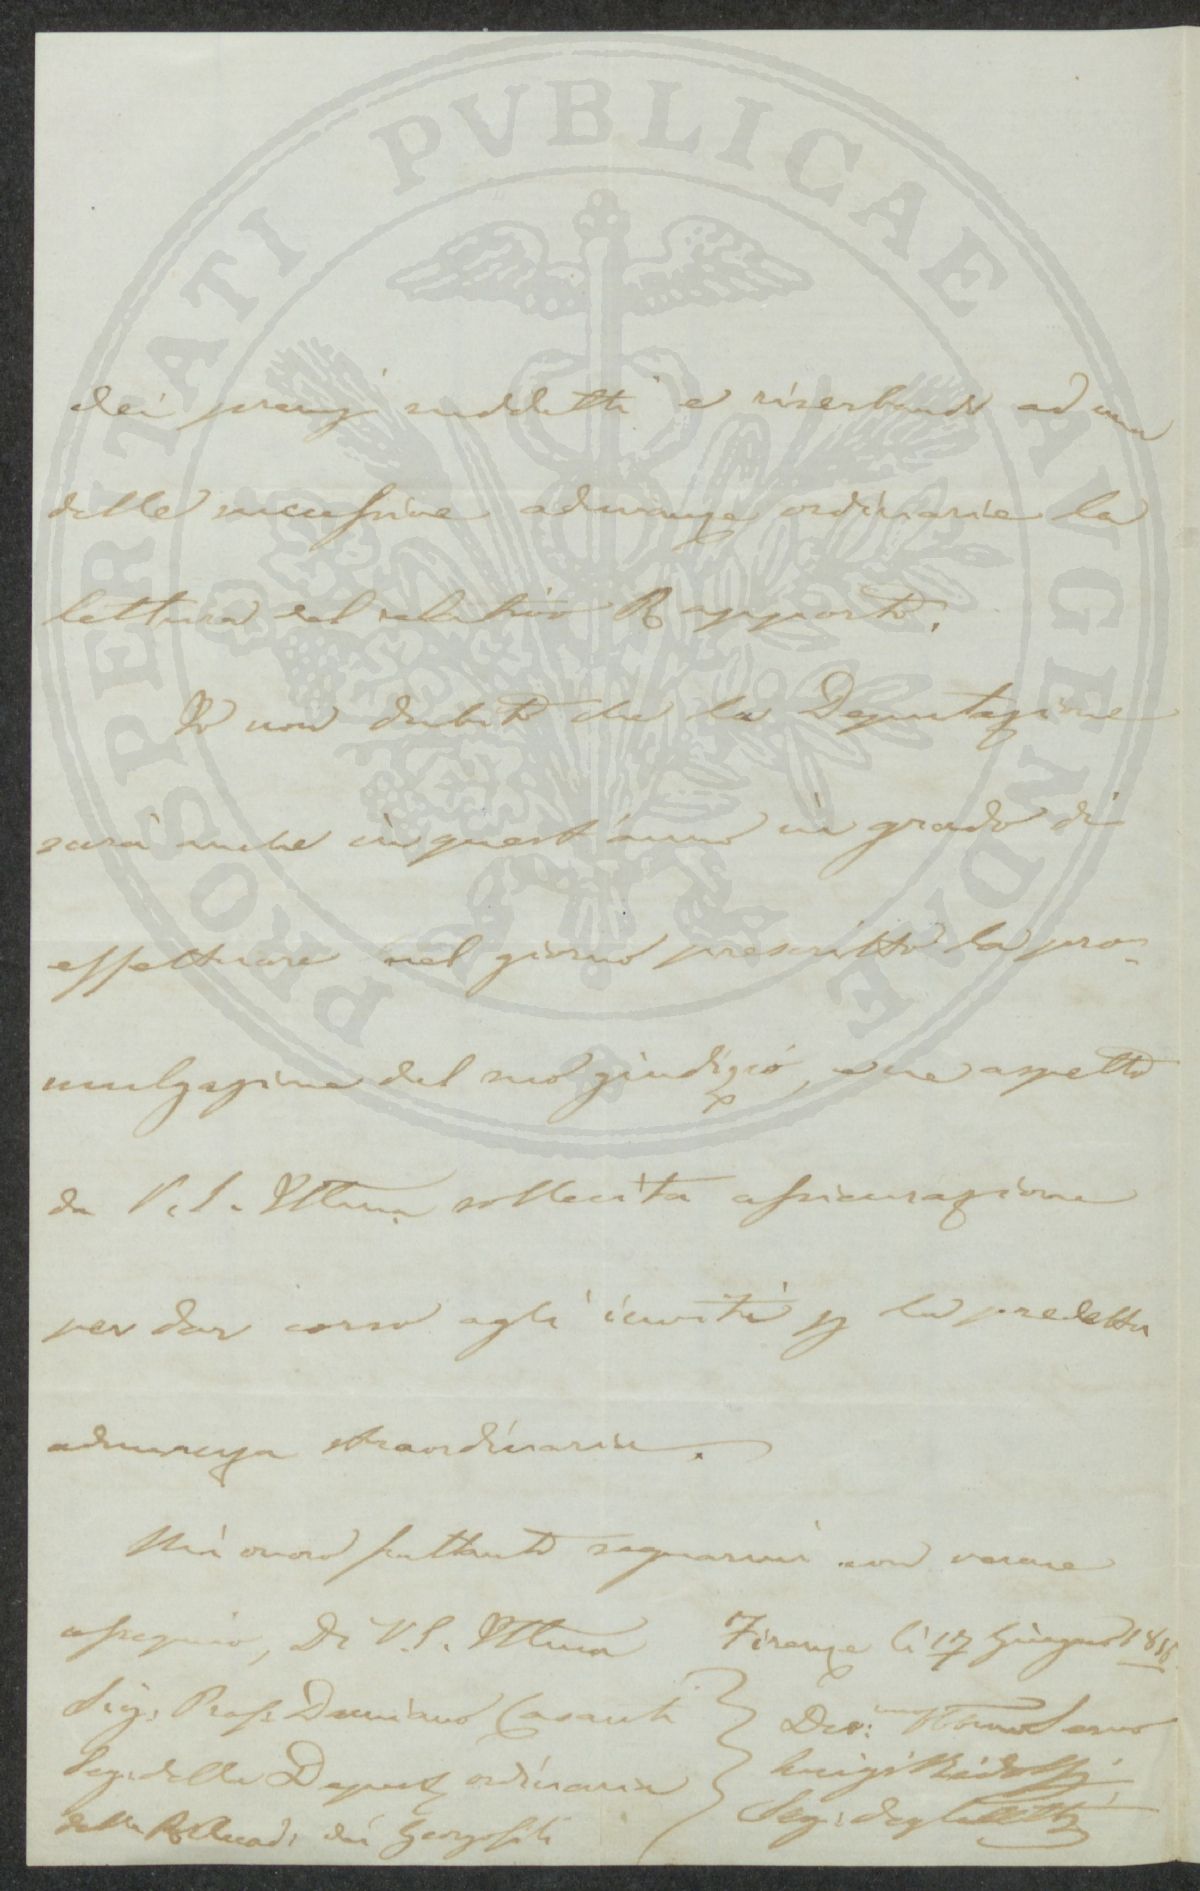 PROSPERITATI PVBLICAE AVGENDAE
dei premj suddetti e riserbando ad una
delle successive adunanze ordinarie la
lettura del relativo Rapporto.
Io non dubito che la Deputazione
sarà anche in quest'anno in grado di
effettuare nel giorno prescritto la pro-
mulgazione del suo giudizio, e ne aspetto
da V. S. Illma sollecita assicurazione
per dar corso agli inviti p la predetta
adunanza straordinaria.
Mi onoro frattanto segnarmi con verace
ossequio, Di V. S. Illma
Firenze li 17 Giugno 1856
Sig. Prof. Damiano Casanti
Seg. della Deput. ordinaria
della R. Accad. dei Georgofili
Dev.mo Servo
Luigi Ridolfi
Seg. degli Atti